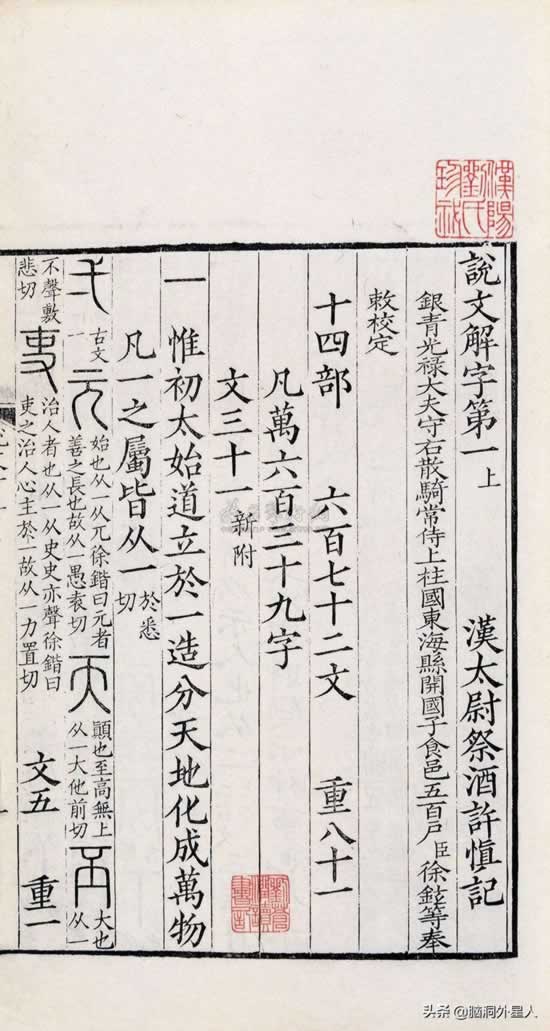 漢陽劉氏珍祕
說文解字第一上 漢太尉祭酒許慎記
銀青光祿大夫守右散騎常侍上柱國東海縣開國子食邑五百戶臣徐鉉等奉
敕校定
十四部 六百七十二文 重八十一
凡萬六百三十九字
文三十一新附
一 惟初太始道立於一造分天地化成萬物
凡一之屬皆从一於悉切
弌古文一元始也从一从兀徐鍇曰元者善之長也故从一愚袁切天顛也至高無上从一大他前切丕大也从一
不聲敷悲切吏治人者也从一从史史亦聲徐鍇曰吏之治人心主於一故从一力置切 文五 重一
头条 @脑洞外星人